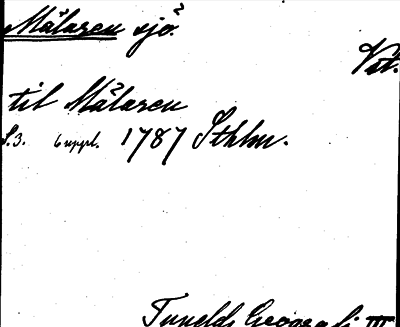 Mälaren sjö.
Väst.
til Mälaren
S. 3. 6 uppl. 1787 Sthlm.
Tunelds Geografi III